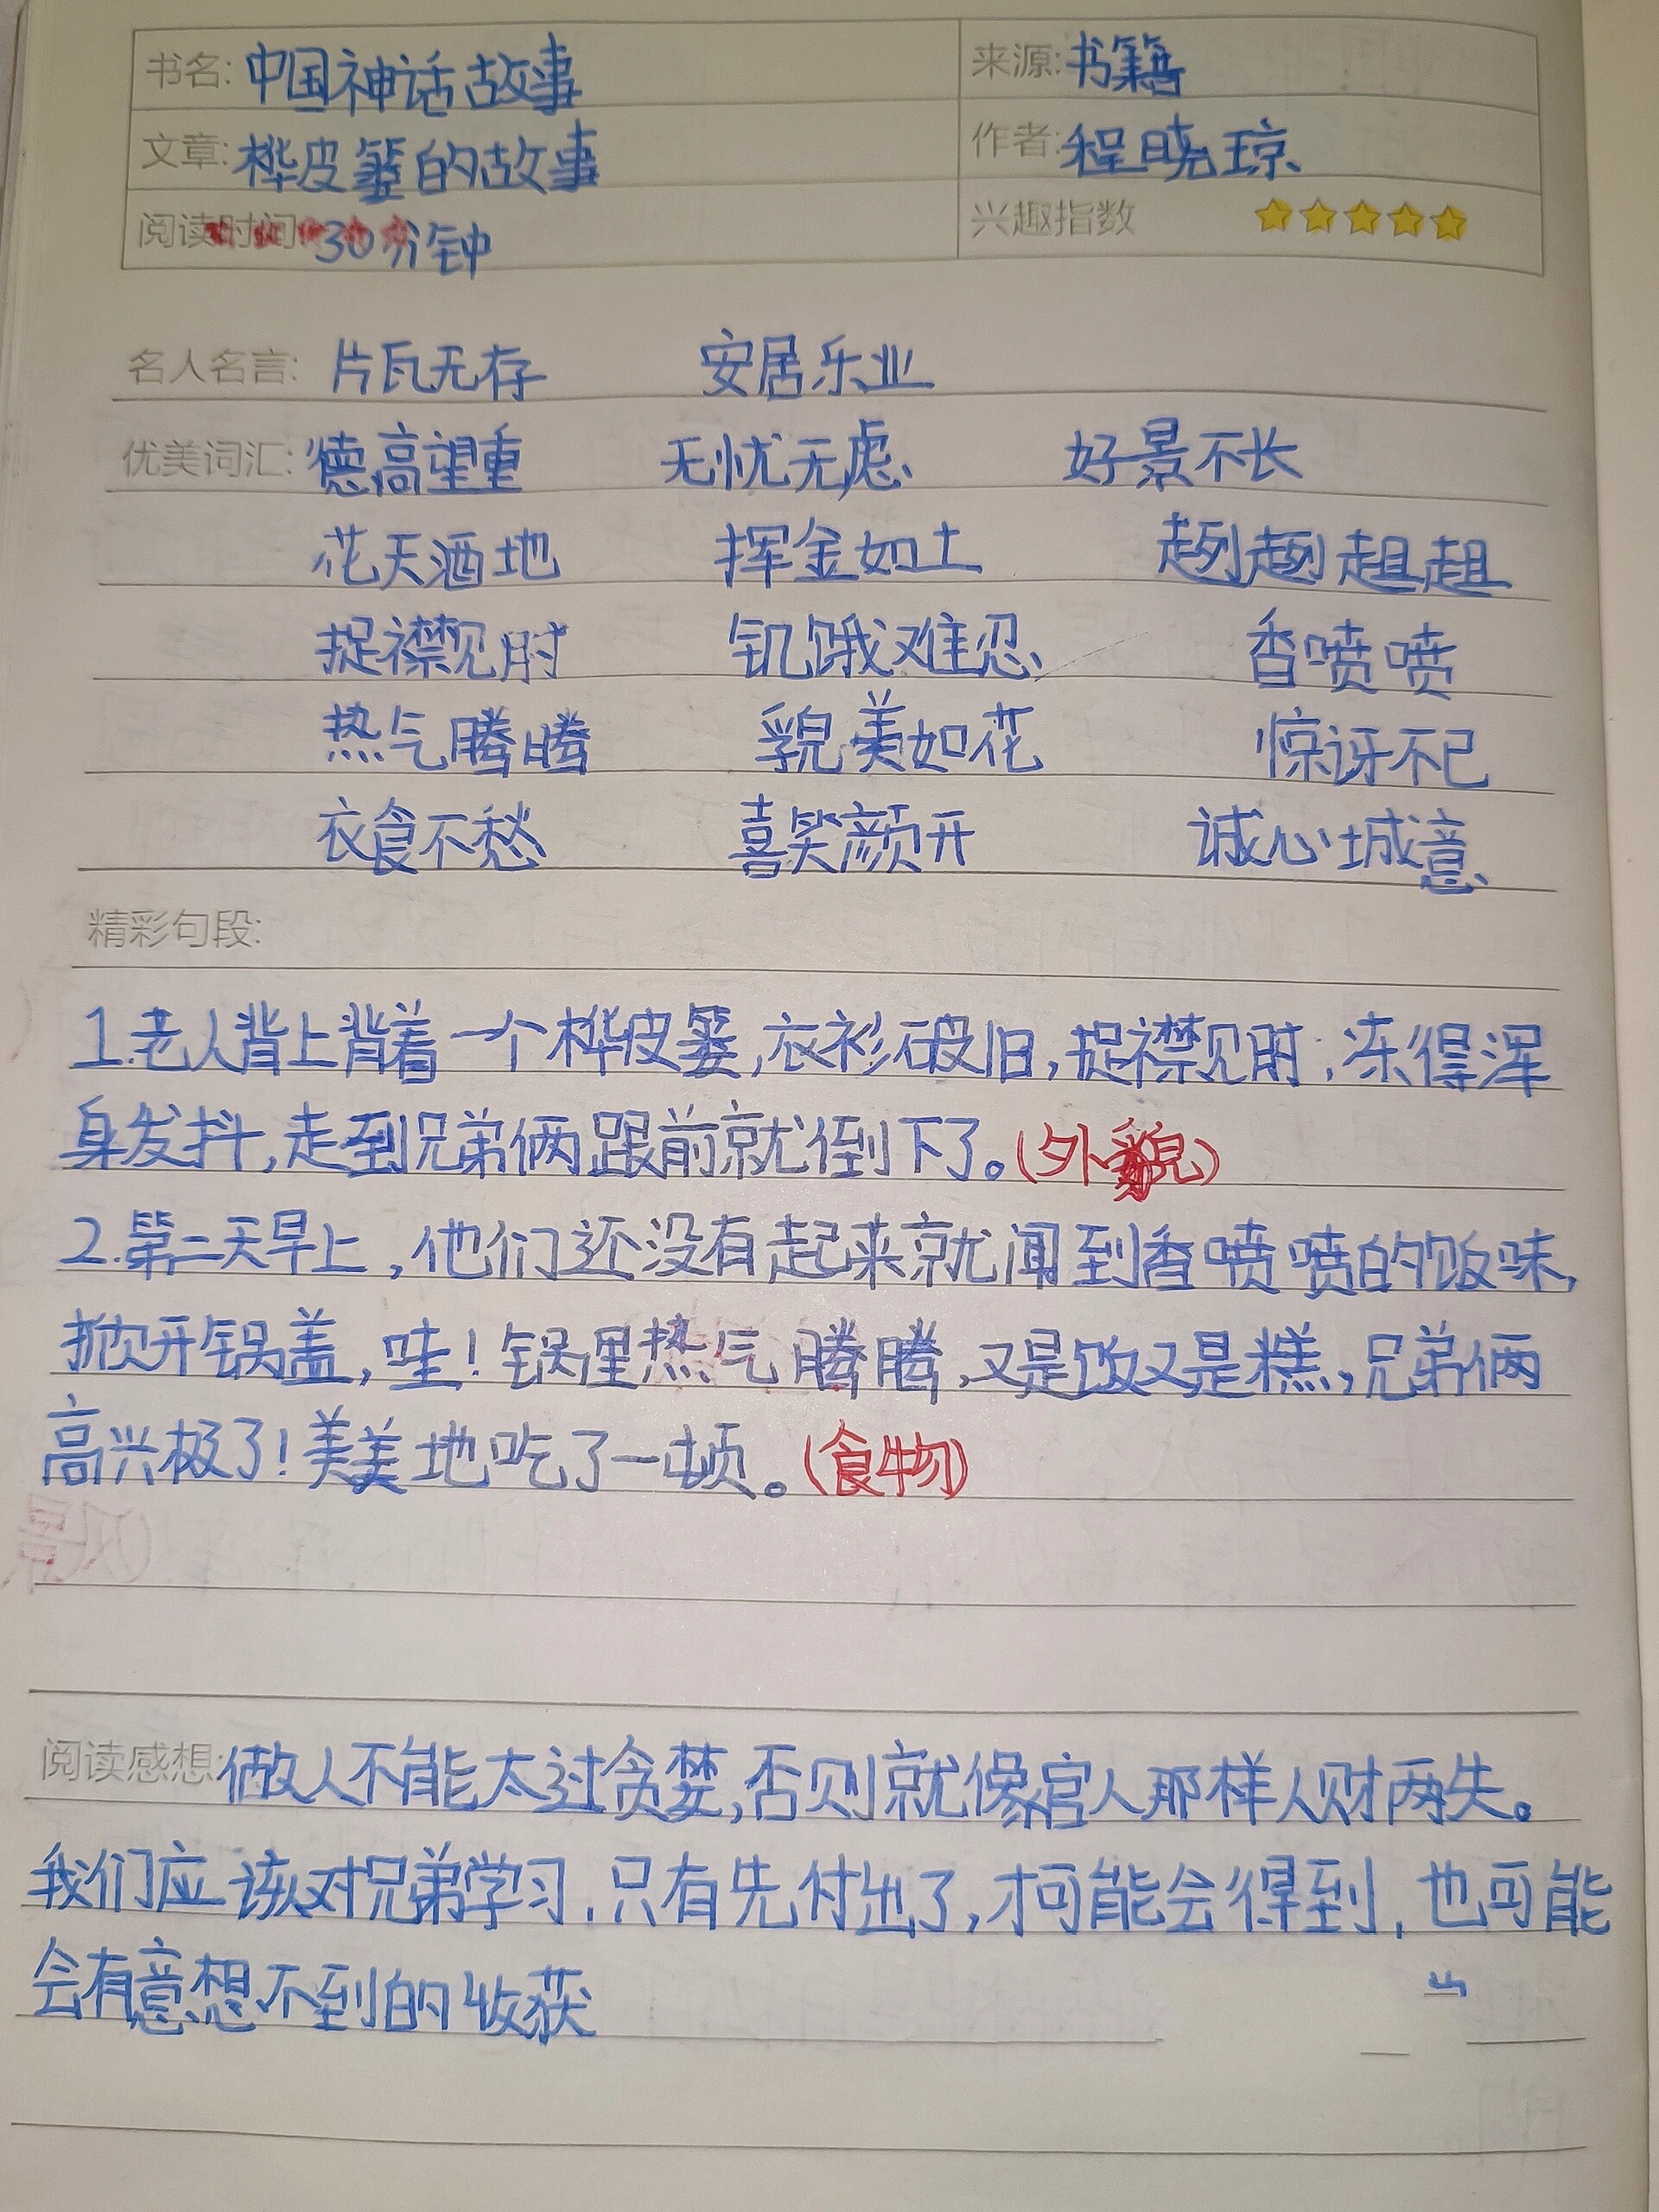 书名:中国神话故事 来源:书籍
文章:桦皮篓的故事 作者:程晓琼
阅读时间 30分钟 兴趣指数
名人名言: 片瓦无存 安居乐业
优美词汇: 德高望重 无忧无虑 好景不长
花天酒地 挥金如土 趔趔趄趄
捉襟见肘 饥饿难忍 香喷喷
热气腾腾 貌美如花 惊讶不已
衣食不愁 喜笑颜开 诚心城意
精彩句段:
1.老人背上背着一个桦皮篓,衣衫破旧,捉襟见肘,冻得浑
身发抖,走到兄弟俩跟前就倒下了。(外貌)
2.第二天早上,他们还没有起来就闻到香喷喷的饭味,
掀开锅盖,哇!锅里热气腾腾,又是饭又是糕,兄弟俩
高兴极了!美美地吃了一顿。(食物)
阅读感想:做人不能太过贪婪,否则就像官人那样人财两失。
我们应该对兄弟学习,只有先付出了,才可能会得到,也可能
会有意想不到的收获